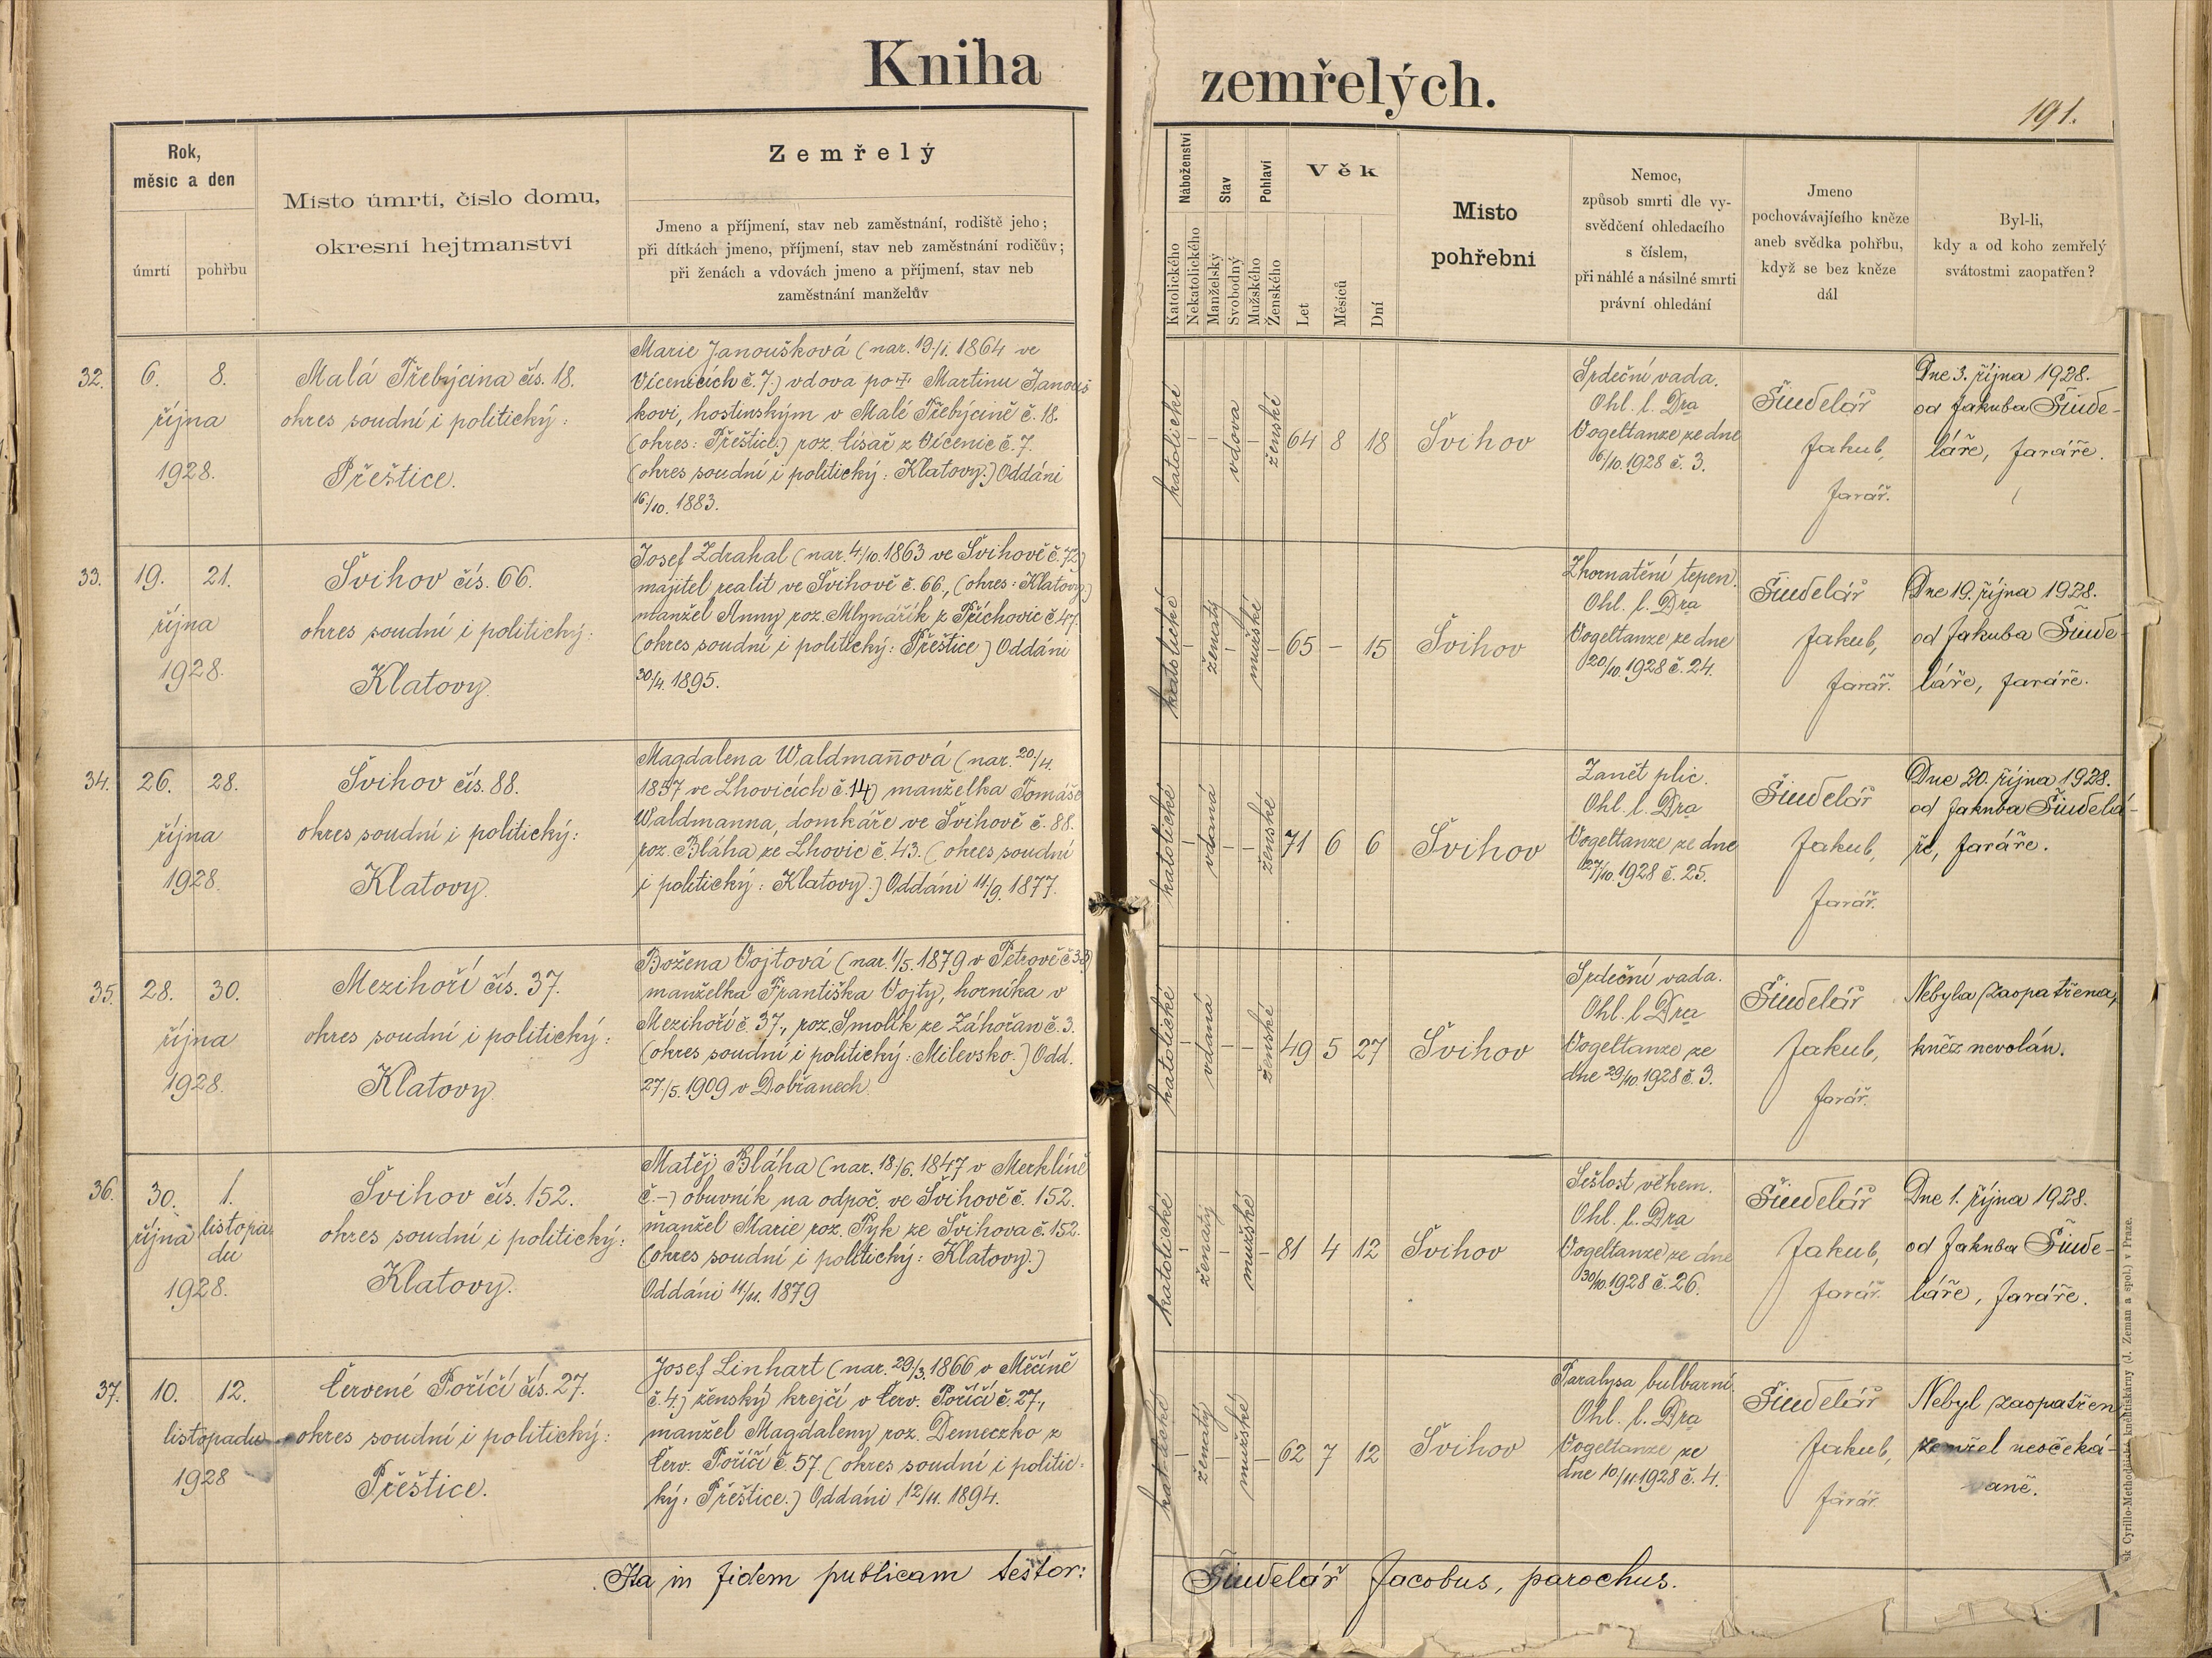 Kniha zemřelých.
191.
Rok,
měsíc a den
úmrtí
pohřbu
Místo úmrtí, číslo domu,
okresní hejtmanství
Zemřelý
Jmeno a příjmení, stav neb zaměstnání, rodiště jeho;
při dítkách jmeno, příjmení, stav neb zaměstnání rodičův;
při ženách a vdovách jmeno a příjmení, stav neb
zaměstnání manželův
Náboženství
Katolického
Nekatolického
Stav
Manželský
Svobodný
Pohlaví
Mužského
Ženského
Věk
Let
Měsíců
Dní
Místo
pohřební
Nemoc,
způsob smrti dle vy-
svědčení ohledacího
s číslem,
při náhlé a násilné smrti
právní ohledání
Jmeno
pochovávajícího kněze
aneb svědka pohřbu,
když se bez kněze
dál
Byl-li,
kdy a od koho zemřelý
svátostmi zaopatřen?
32.
6. 8.
října
1928.
Malá Třebýcina čís. 18.
okres soudní i politický:
Přeštice.
Marie Janoušková (nar. 19./1. 1864 ve
Vícenicích č. 7.) vdova po † Martinu Janouš
kovi, hostinským v Malé Třebýcině č. 18.
(okres: Přeštice.) roz. Císař z Vícenic č. 7.
(okres soudní i politický: Klatovy.) Oddáni
16./10. 1883.
katolické
–
–
vdova
–
ženské
64 8 18
Švihov
Srdeční vada.
Ohl. l. Dra
Vogeltanze ze dne
6/10. 1928 č. 3.
Šindelář
Jakub,
farář.
Dne 3. října 1928.
od Jakuba Šinde-
láře, faráře.
33.
19. 21.
října
1928.
Švihov čís. 66.
okres soudní i politický:
Klatovy.
Josef Zdrahal (nar. 4./10. 1863 ve Švihově č. 72)
majitel realit ve Švihově č. 66., (okres: Klatovy.)
manžel Anny roz. Mlynařík z Příchovic č. 47.
(okres soudní i politický: Přeštice) Oddáni
30/4. 1895.
katolické
–
ženatý
–
mužské
–
65 – 15
Švihov
Zkornatění tepen.
Ohl. l. Dra
Vogeltanze ze dne
20/10. 1928 č. 24.
Šindelář
Jakub,
farář.
Dne 19. října 1928.
od Jakuba Šinde-
láře, faráře.
34.
26. 28.
října
1928.
Švihov čís. 88.
okres soudní i politický:
Klatovy.
Magdalena Waldman̄ová (nar. 20./4.
1857 ve Lhovicích č. 14) manželka Tomáše
Waldmanna, domkáře ve Švihově č. 88.
roz. Bláha ze Lhovic č. 43. (okres soudní
i politický: Klatovy.) Oddáni 11./9. 1877.
katolické
–
vdaná
–
–
ženské
71 6 6
Švihov
Zanět plic.
Ohl. l. Dra
Vogeltanze ze dne
27/10. 1928 č. 25.
Šindelář
Jakub,
farář.
Dne 20. října 1928.
od Jakuba Šindelá-
ře, faráře.
35.
28. 30.
října
1928.
Mezihoří čís. 37.
okres soudní i politický:
Klatovy.
Božena Vojtová (nar. 1/5. 1879 v Petrově č 33)
manželka Františka Vojty, horníka v
Mezihoří č. 37., roz. Smolík ze Záhořan č. 3.
(okres soudní i politický: Milevsko.) Odd.
27./5. 1909 v Dobřanech.
katolické
–
vdaná
–
–
ženské
49 5 27
Švihov
Srdeční vada.
Ohl. l Dra
Vogeltanze ze
dne 29/10. 1928 č. 3.
Šindelář
Jakub,
farář.
Nebyla zaopatřena,
kněz nevolán.
36.
30. 1.
října listopa-
du
1928.
Švihov čís. 152.
okres soudní i politický:
Klatovy.
Matěj Bláha (nar. 18./6. 1847 v Merklíně
č. –) obuvník na odpoč. ve Švihově č. 152.
manžel Marie roz. Pyk ze Švihova č. 152.
(okres soudní i politický: Klatovy.)
Oddáni 11./11. 1879
katolické
–
ženatý
–
mužské
–
81 4 12
Švihov
Sešlost věkem.
Ohl. l. Dra
Vogeltanze ze dne
30/10. 1928 č. 26.
Šindelář
Jakub,
farář.
Dne 1. října 1928.
od Jakuba Šinde-
láře, faráře.
37.
10. 12.
listopadu
1928
Červené Poříčí čís. 27.
okres soudní i politický:
Přeštice.
Josef Linhart (nar. 29./3. 1866 v Měčíně
č. 4.) ženský krejčí v Červ. Poříčí č. 27.,
manžel Magdaleny roz. Demeczko z
Červ. Poříčí č. 57 (okres soudní i politic-
ký: Přeštice.) Oddáni 12/11. 1894.
katolické
–
ženatý
–
mužské
–
62 7 12
Švihov
Paralysa bulbarní.
Ohl. l. Dra
Vogeltanze ze
dne 10/11. 1928 č. 4.
Šindelář
Jakub,
farář.
Nebyl zaopatřen
zemřel neočeká-
aně.
Ita in fidem publicam testor: Šindelář Jacobus, parochus.
sk Cyrillo-Methodějské knihtiskárny (J. Zeman a spol.) v Praze.